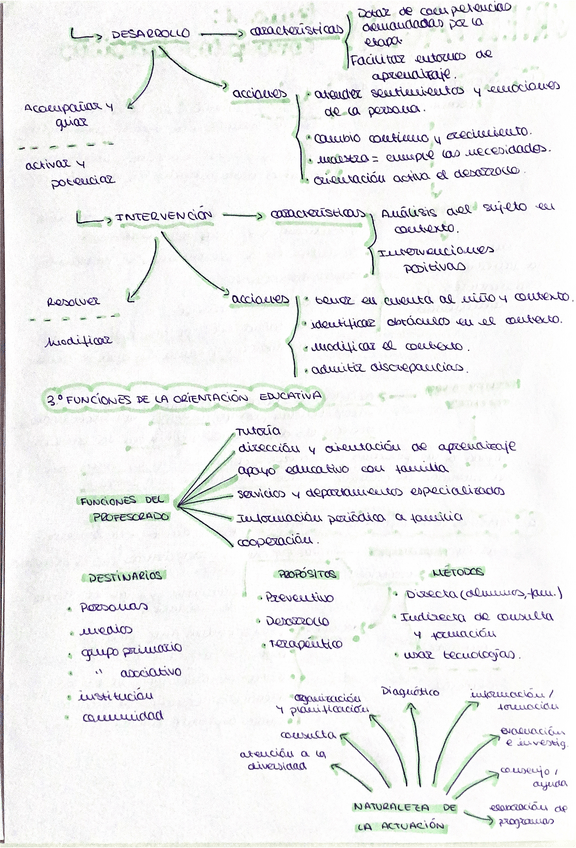 DESARROLLO
características
Dotar de competencias
demandadas por la
etapa.
Facilitar entornos de
aprendizaje.
acciones
· atender sentimientos y emociones
de la persona.
· cambio continuo y crecimiento.
· maestra = cumple las necesidades.
· orientación activa el desarrollo.
Acompañar y
guiar
activar y
potenciar
INTERVENCIÓN
características
Análisis del sujeto en
contexto.
Intervenciones
positivas
acciones
· tener en cuenta al niño y contexto.
· identificar obstáculos en el contexto.
· modificar el contexto.
· admitir discrepancias.
Resolver
Modificar
3º FUNCIONES DE LA ORIENTACIÓN EDUCATIVA
FUNCIONES DEL
PROFESORADO
Tutoría
dirección y orientación de aprendizaje
apoyo educativo con familia
servicios y departamentos especializados
Información periódica a familia
cooperación.
DESTINARIOS
· Personas
· medios
· grupo primario
· " asociativo
· institución
· comunidad
PROPÓSITOS
· Preventivo
· Desarrollo
· Terapéutico
MÉTODOS
· Directa (alumnos, fam.)
· Indirecta de consulta
y formación
· usar tecnologías.
NATURALEZA DE
LA ACTUACIÓN
atención a la
diversidad
consulta
organización
y planificación
Diagnóstico
información /
formación
evaluación
e investig.
consejo /
ayuda
elaboración de
programas